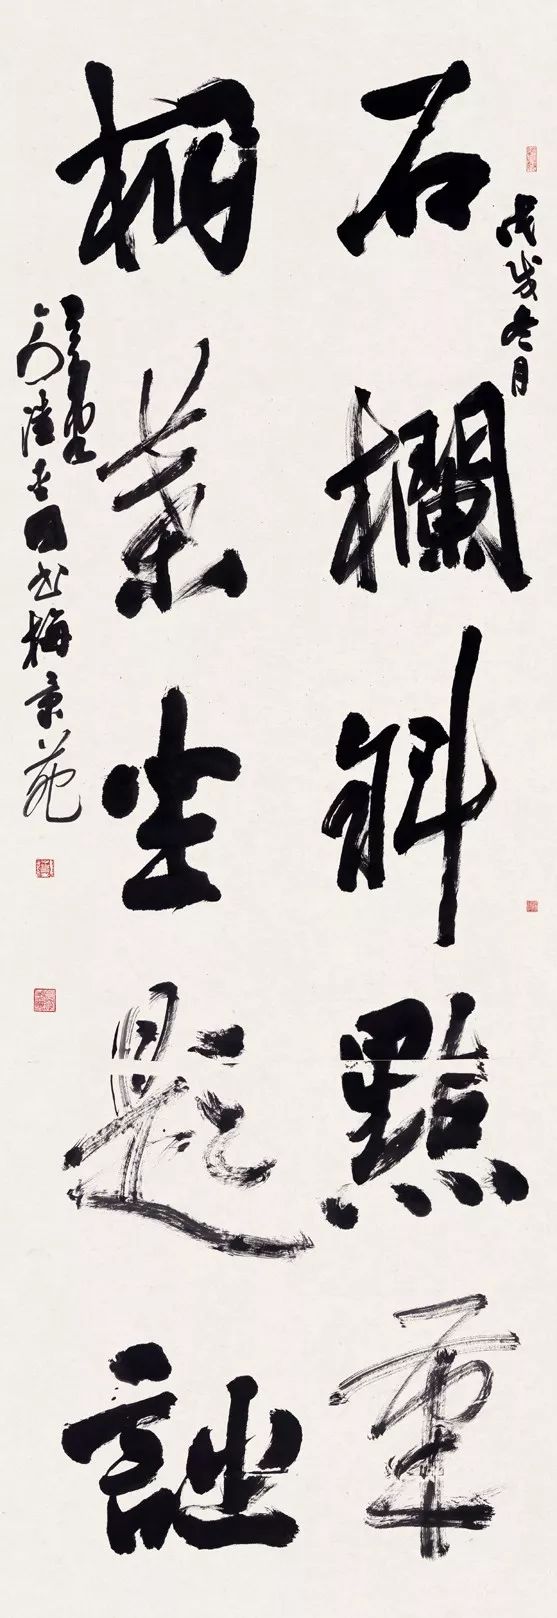 戊戌冬月
石欄斜點筆
桐葉坐題詩
書梅景苑